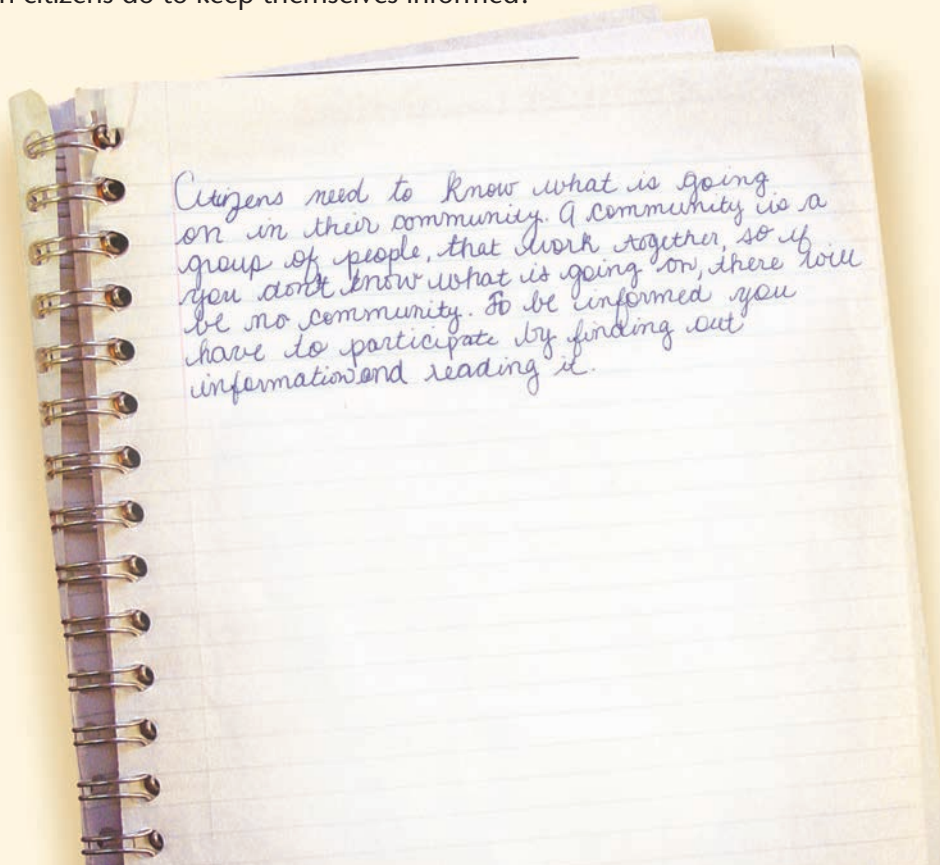 n citizens do to keep themselves informed?
Citizens need to know what is going
on in their community. A community is a
group of people, that work together, so if
you don't know what is going on, there will
be no community. To be informed you
have to participate by finding out
information and reading it.